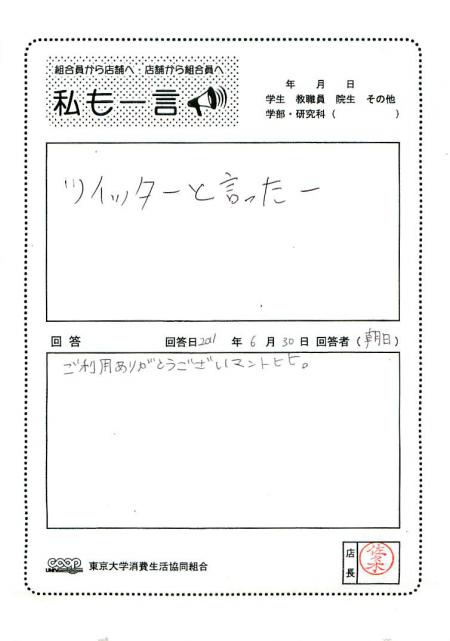 組合員から店舗へ・店舗から組合員へ
私も一言
年 月 日
学生 教職員 院生 その他
学部・研究科 ( )
ツイッターと言ったー
回答 回答日2011 年 6 月 30 日 回答者 (朝日)
ご利用ありがとうございマントヒヒ。
coop 東京大学消費生活協同組合
店長 佐々木